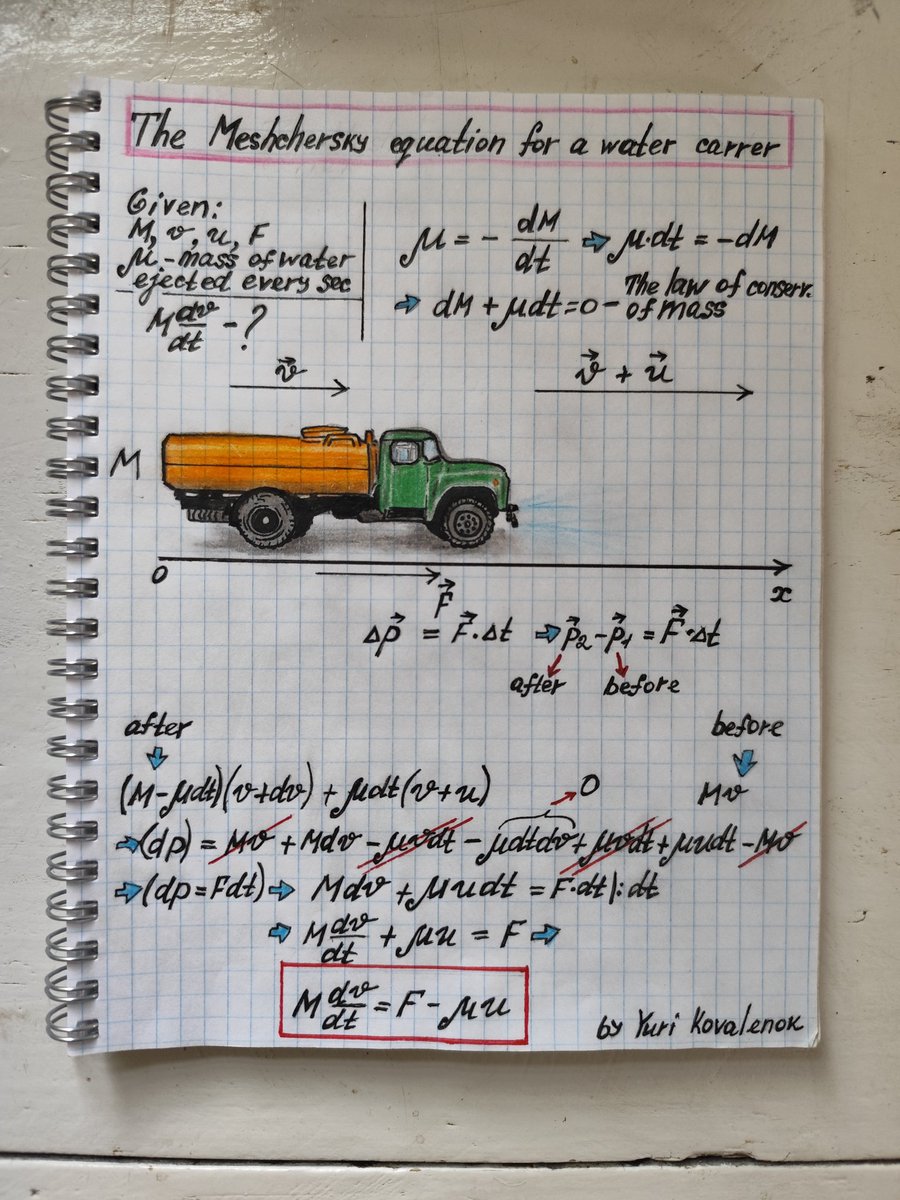 The Meshchersky equation for a water carrer
Given:
M, v, u, F
μ - mass of water
ejected every sec
M dv/dt - ?
μ = - dM/dt ⇒ μ·dt = -dM
⇒ dM + μdt = 0 - The law of conserv.
of mass
v⃗
v⃗ + u⃗
M
0
x
F⃗
Δp⃗ = F⃗·Δt ⇒ p⃗₂ - p⃗₁ = F⃗·Δt
after before
after before
(M - μdt)(v + dv) + μdt(v + u) 0 Mv
⇒ (dp) = Mv + Mdv - μvdt - μdtdv + μvdt + μudt - Mv
⇒ (dp = Fdt) ⇒ Mdv + μudt = F·dt |: dt
⇒ M dv/dt + μu = F ⇒
M dv/dt = F - μu
by Yuri Kovalenok